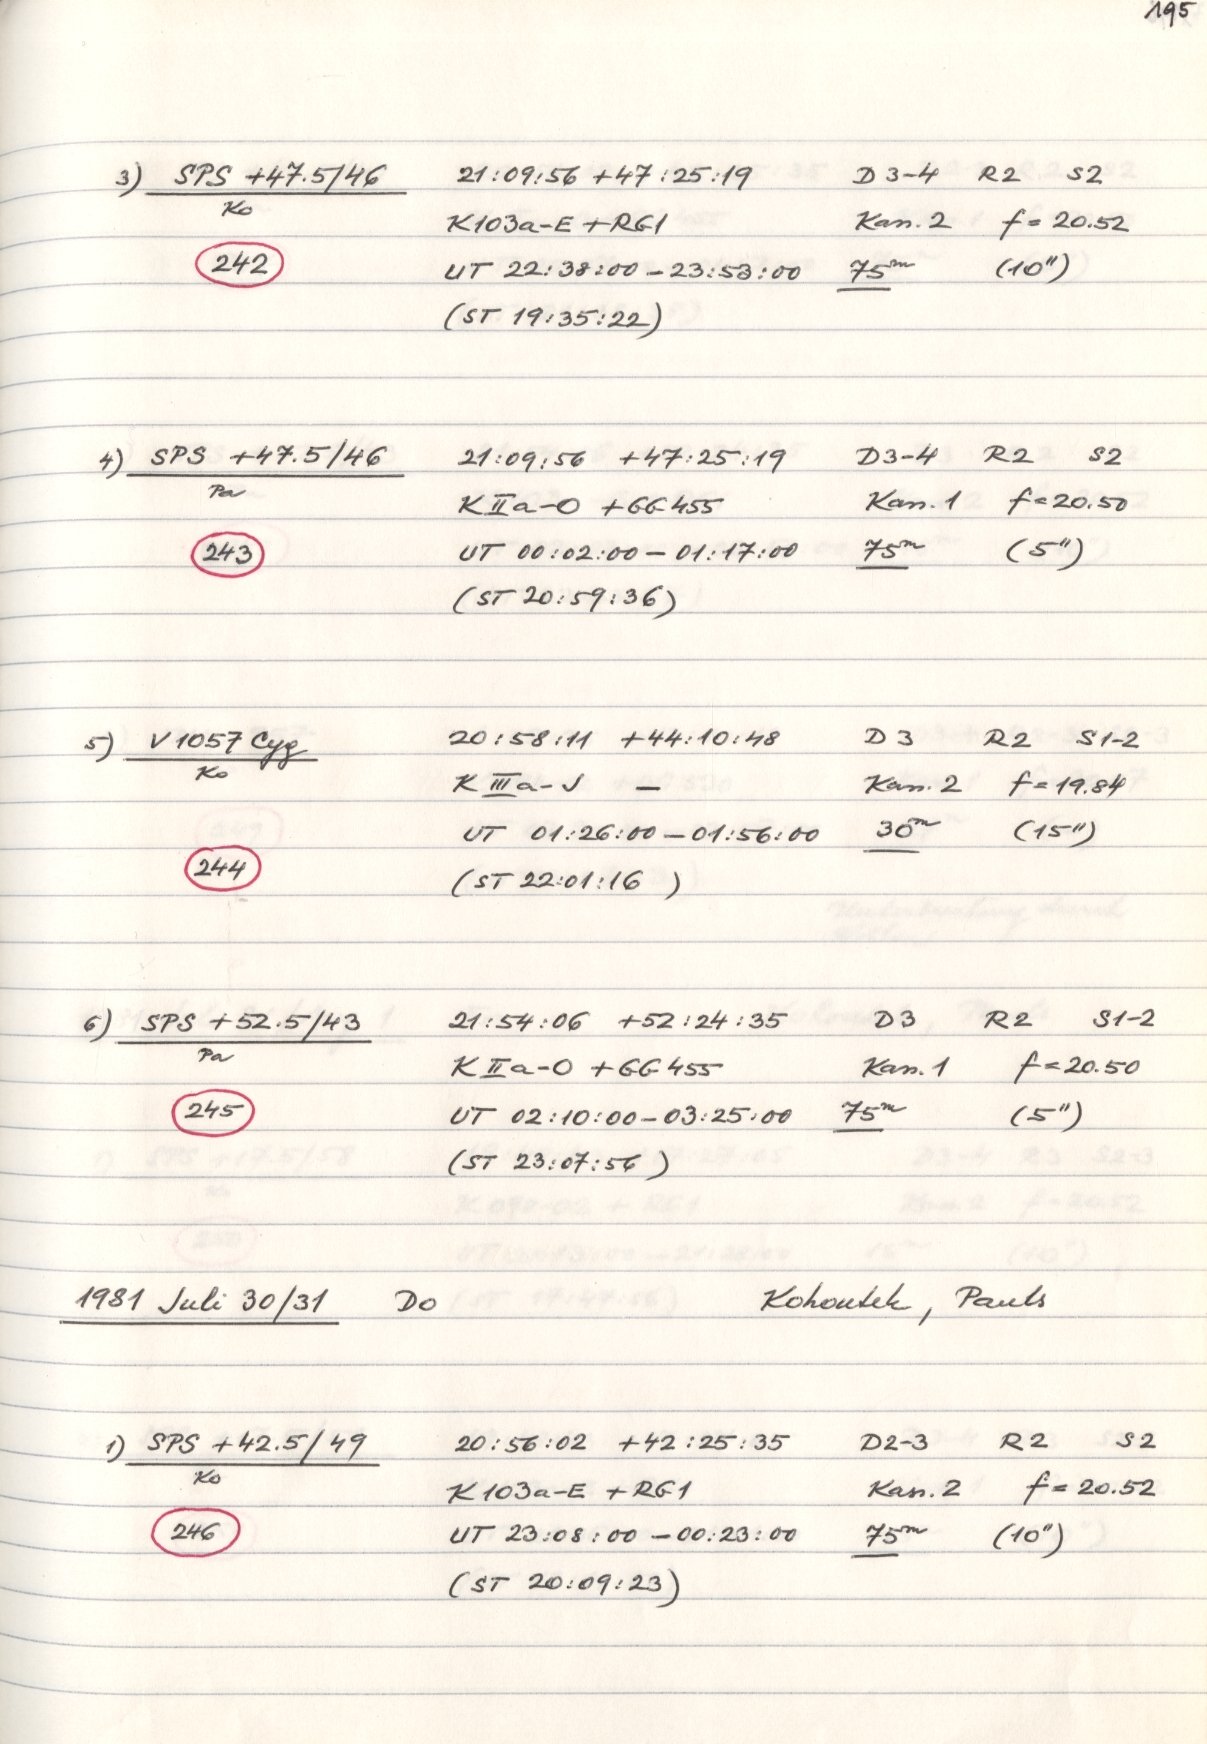 195
3) SPS +47.5/46 21:09:56 +47:25:19 D3-4 R2 S2
Ko K103a-E +RG1 Kan. 2 f = 20.52
242 UT 22:38:00 - 23:53:00 75m (10")
(ST 19:35:22)
4) SPS +47.5/46 21:09:56 +47:25:19 D3-4 R2 S2
Pa K IIa-O +GG455 Kan. 1 f = 20.50
243 UT 00:02:00 - 01:17:00 75m (5")
(ST 20:59:36)
5) V1057 Cyg 20:58:11 +44:10:48 D3 R2 S1-2
Ko K IIIa-J - Kan. 2 f = 19.84
UT 01:26:00 - 01:56:00 30m (15")
244 (ST 22:01:16 )
6) SPS +52.5/43 21:54:06 +52:24:35 D3 R2 S1-2
Pa K IIa-O +GG455 Kan. 1 f = 20.50
245 UT 02:10:00 - 03:25:00 75m (5")
(ST 23:07:56 )
1981 Juli 30/31 Do Kohoutek, Pauls
1) SPS +42.5/49 20:56:02 +42:25:35 D2-3 R2 S2
Ko K103a-E +RG1 Kan. 2 f = 20.52
246 UT 23:08:00 - 00:23:00 75m (10")
(ST 20:09:23)